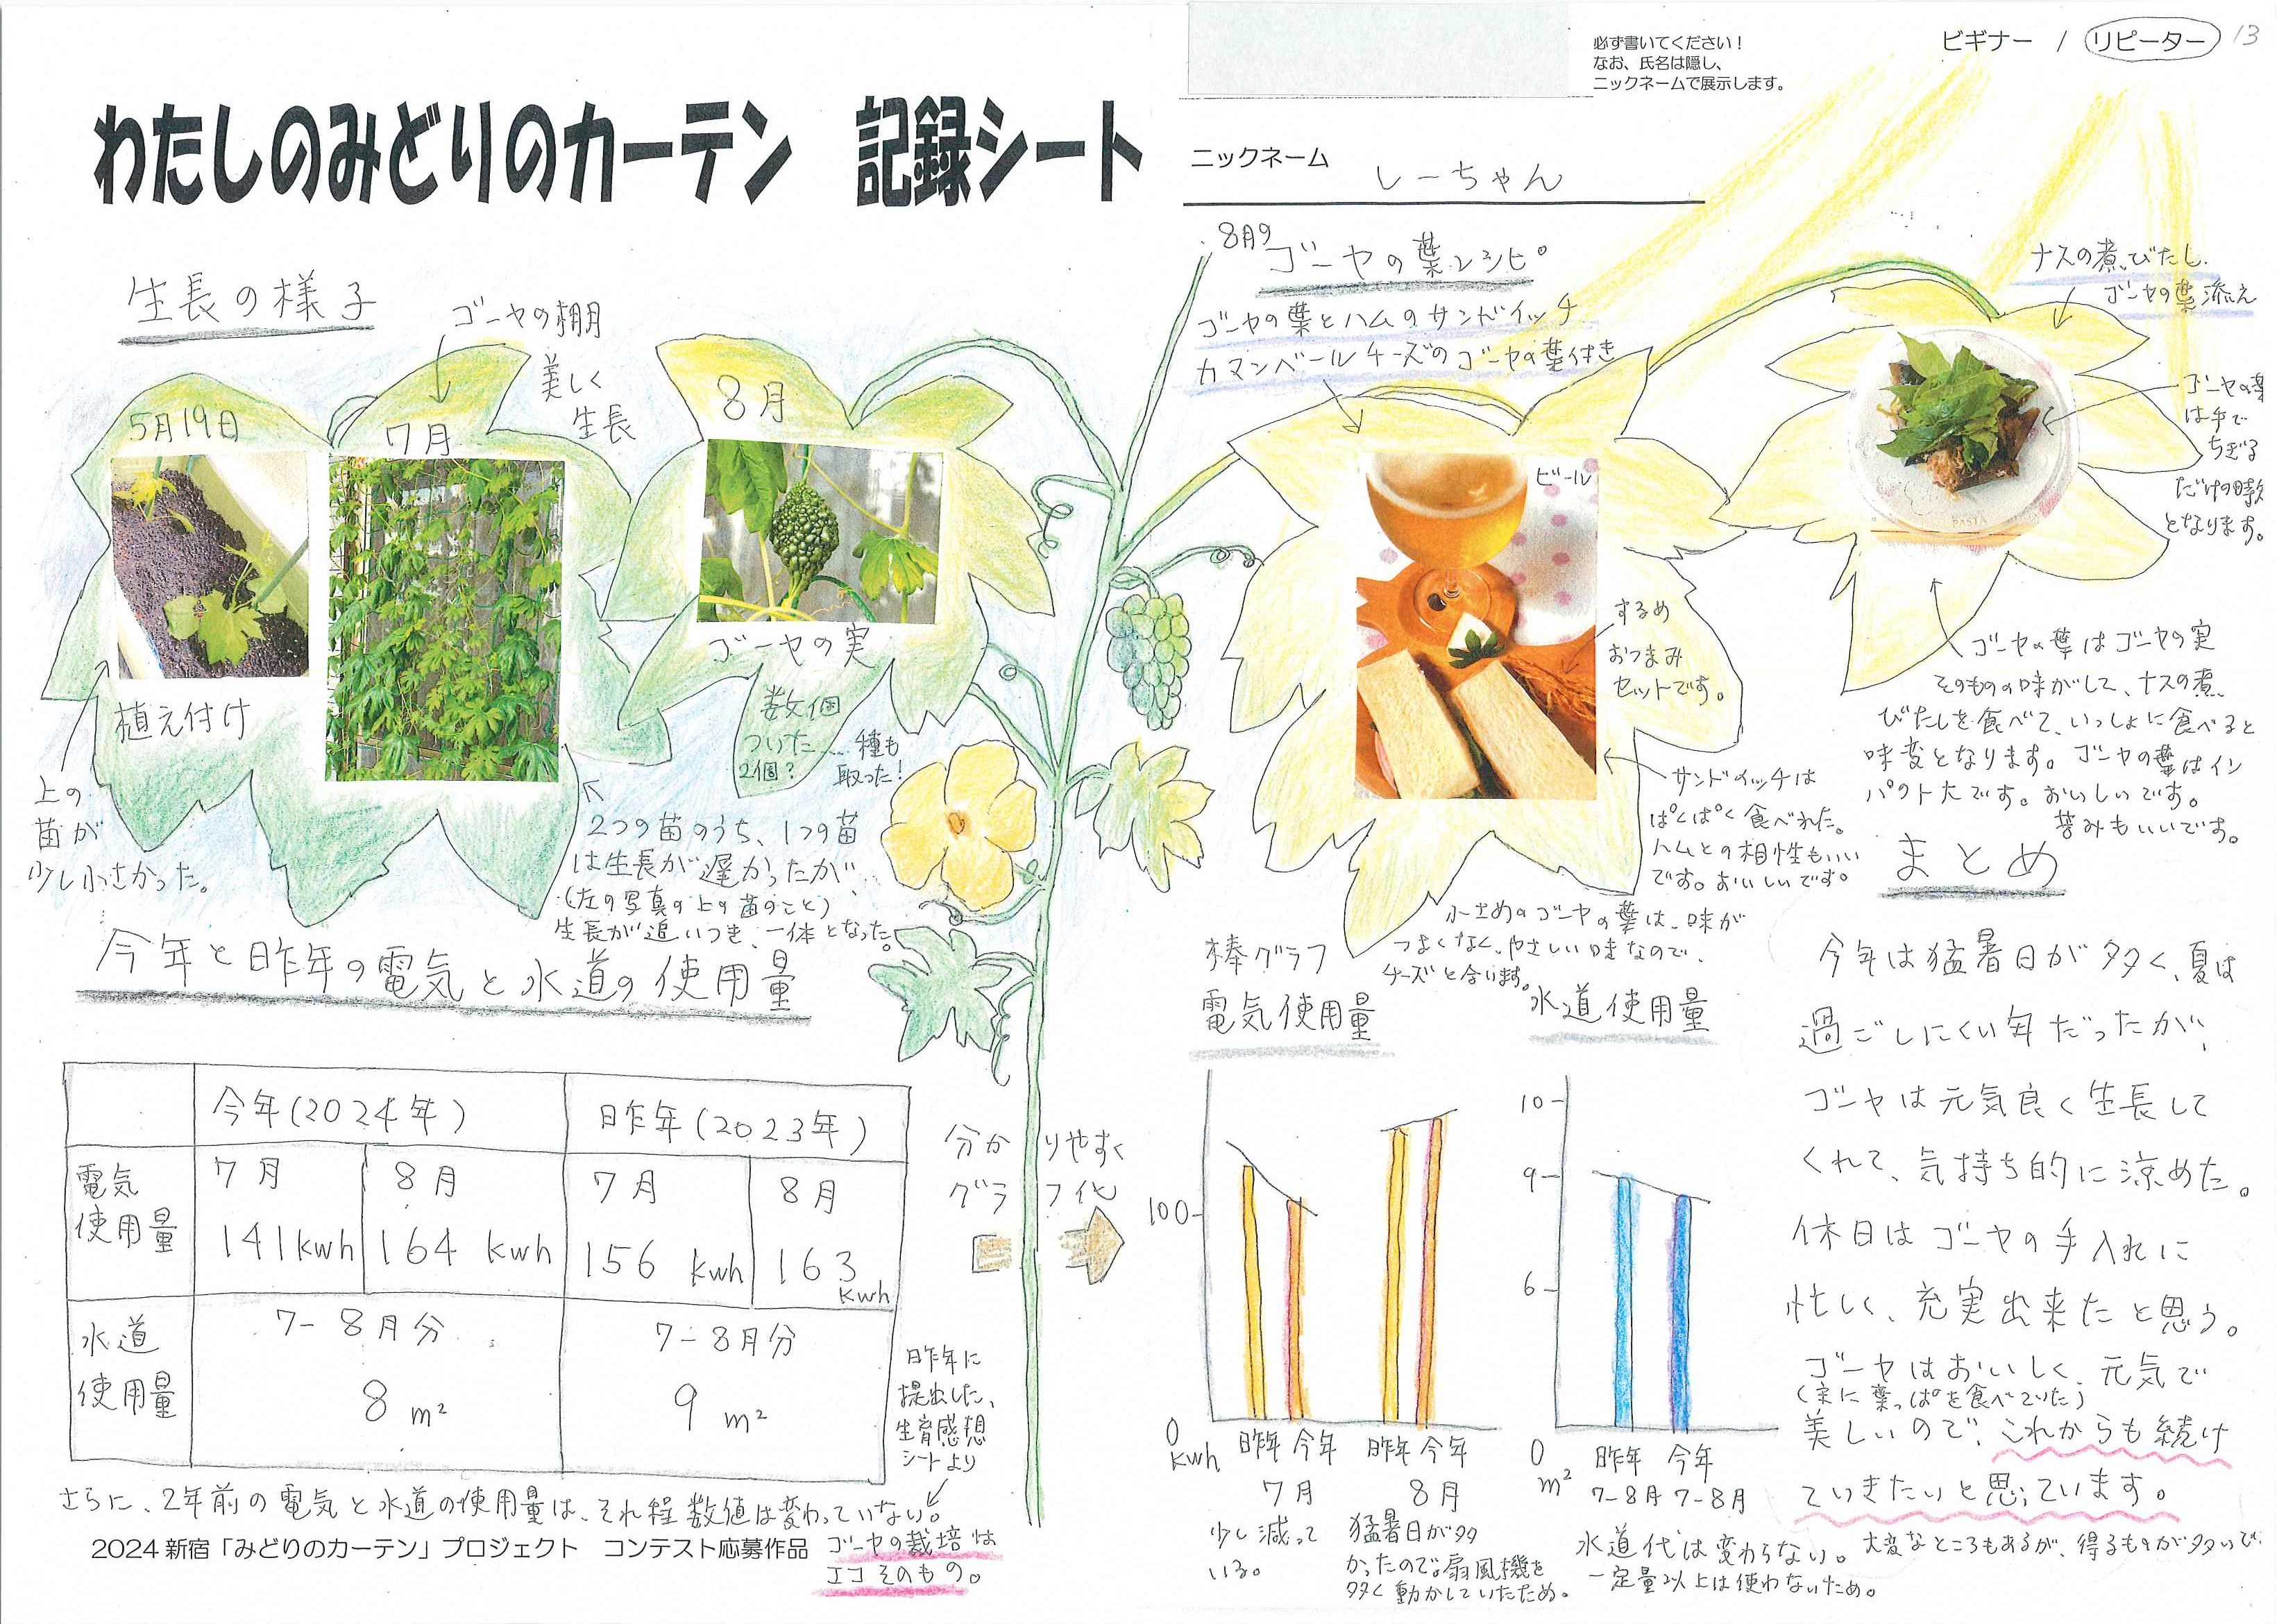 必ず書いてください！
なお、氏名は隠し、
ニックネームで展示します。
ビギナー / リピーター 13
わたしのみどりのカーテン 記録シート
ニックネーム しーちゃん
生長の様子
5月19日
植え付け
上の
苗が
少し小さかった。
ゴーヤの棚
美しく
生長
7月
2つの苗のうち、1つの苗
は生長が遅かったが、
(左の写真の上の苗のこと)
生長が追いつき、一体となった。
8月
ゴーヤの実
数個
ついた…
2個?
種も
取った!
8月9
ゴーヤの葉レシピ。
ゴーヤの葉とハムのサンドイッチ
カマンベールチーズのゴーヤの葉付き
ビール
するめ
おつまみ
セットです。
サンドイッチは
ぱくぱく食べれた。
ハムとの相性もいい
です。おいしいです。
小さめのゴーヤの葉は、味が
つよくなく、やさしい味なので、
チーズと合います。
ナスの煮びたし
ゴーヤの葉添え
ゴーヤの葉
は手で
ちぎる
だけの時
となります。
ゴーヤの葉はゴーヤの実
そのものの味がして、ナスの煮
びたしを食べて、いっしょに食べると
味変となります。ゴーヤの葉はイン
パクト大です。おいしいです。
苦みもいいです。
今年と昨年の電気と水道の使用量
今年(2024年) 昨年(2023年)
電気使用量 7月 8月 7月 8月
141kwh 164 kwh 156 kwh 163 kwh
水道使用量 7-8月分 7-8月分
8 m² 9 m²
分かりやすく
グラフ化
昨年に
提出した、
生育感想
シートより
さらに、2年前の電気と水道の使用量は、それ程数値は変わっていない。
ゴーヤの栽培は
エコそのもの。
2024 新宿「みどりのカーテン」プロジェクト コンテスト応募作品
棒グラフ
電気使用量
100
0
kwh
昨年 今年 昨年 今年
7月 8月
少し減って
いる。
猛暑日が多
かったので。扇風機を
多く動かしていたため。
水道使用量
10
9
6
0
m²
昨年 今年
7-8月 7-8月
水道代は変わらない。
一定量以上は使わないため。
まとめ
今年は猛暑日が多く、夏は
過ごしにくい年だったが、
ゴーヤは元気良く生長して
くれて、気持ち的に涼めた。
休日はゴーヤの手入れに
忙しく、充実出来たと思う。
ゴーヤはおいしく、元気で
(主に葉っぱを食べていた)
美しいので、これからも続け
ていきたいと思っています。
大変なところもあるが、得るものが多いで